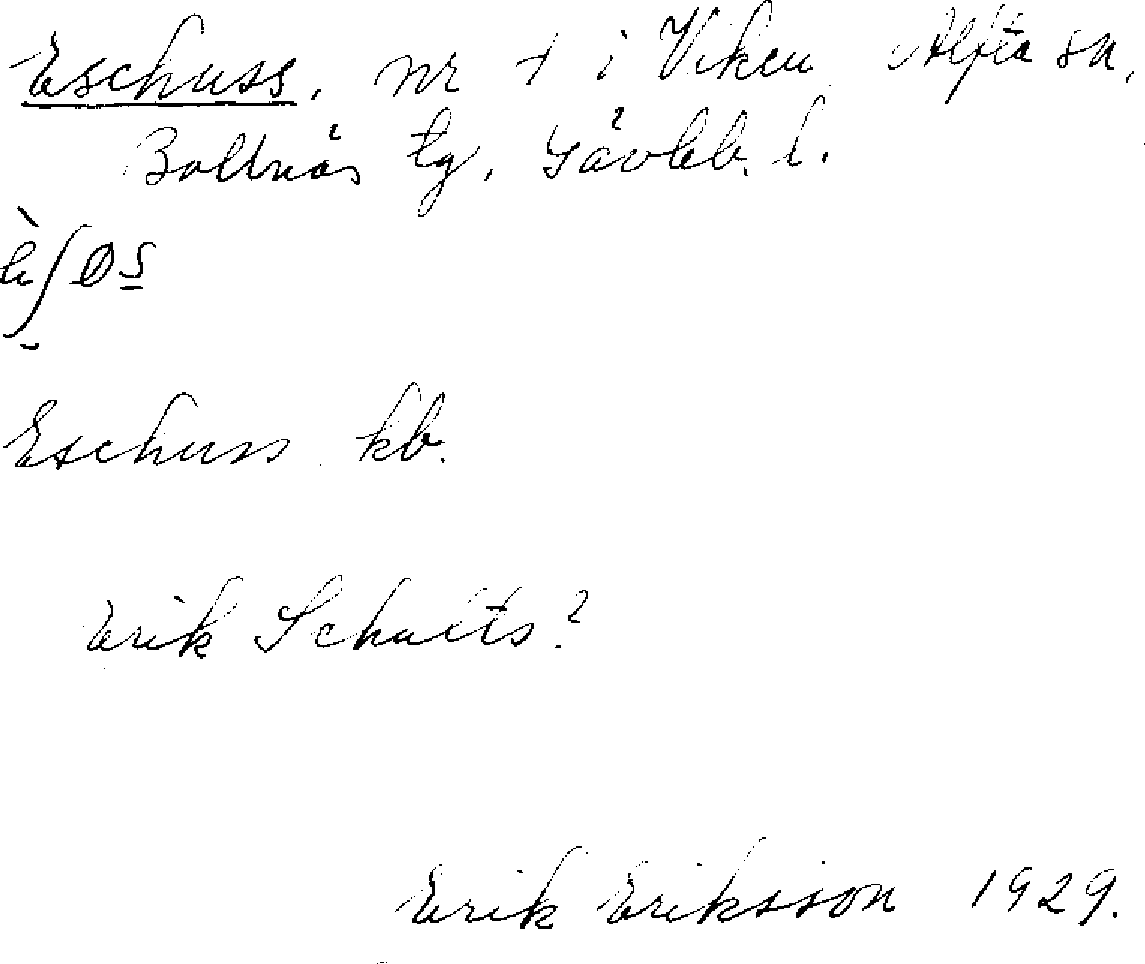 Eschuss, nr i Viken Alfta sn,
Bollnäs tg, Gävleb. l.
Eschuss kb.
Erik Schults?
Erik Eriksson 1929.